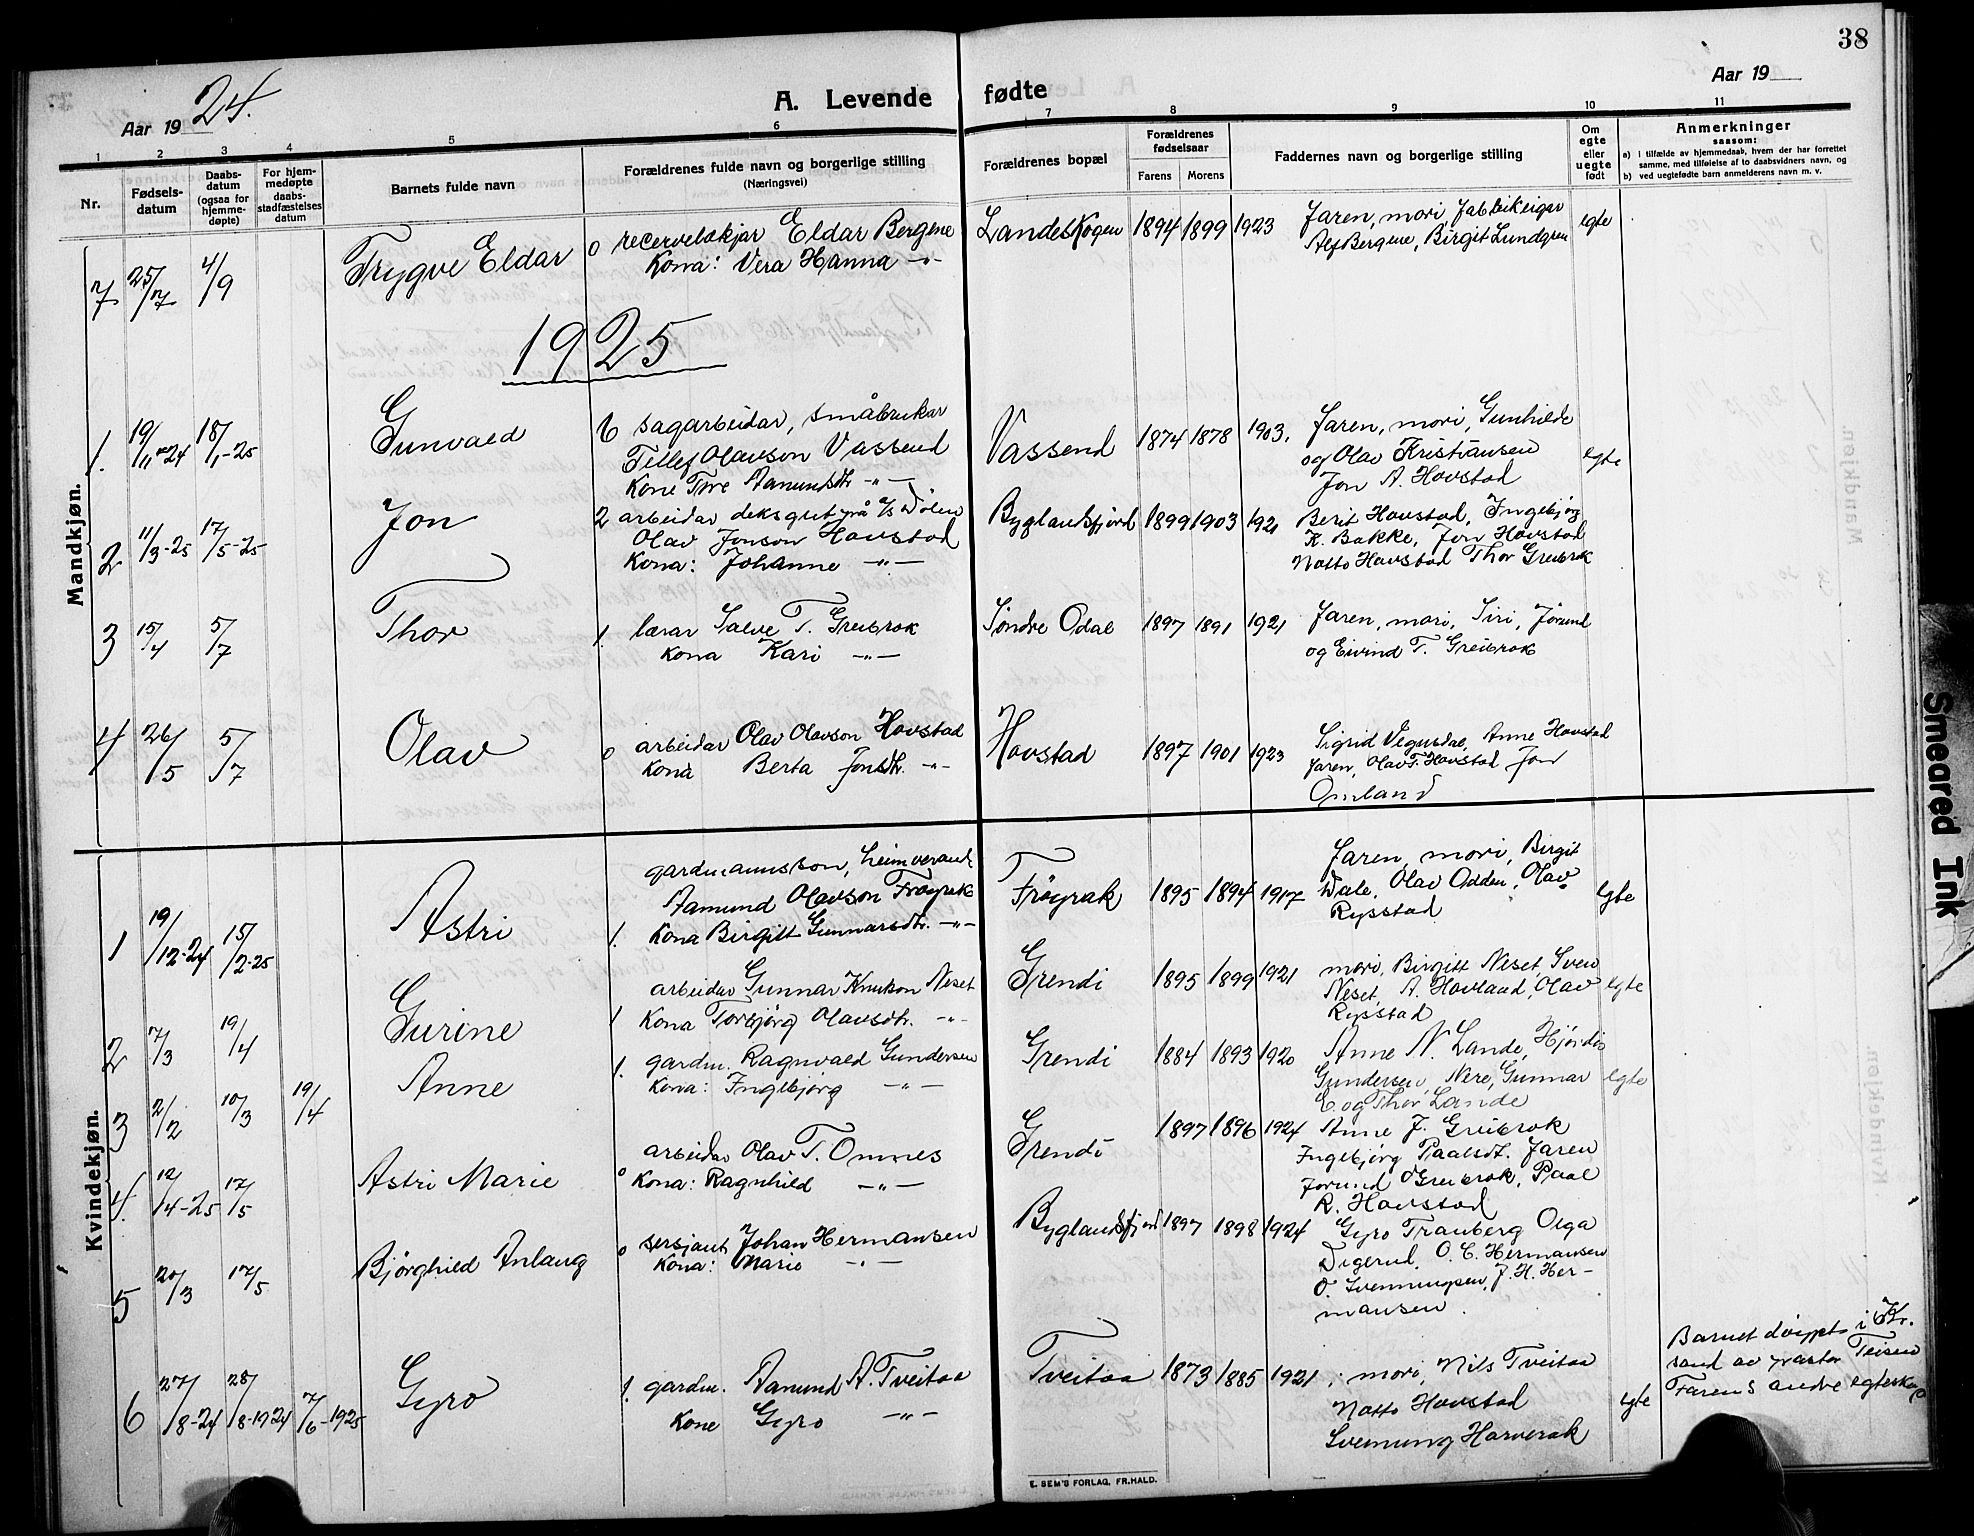 38
Aar 1924. A. Levende fødte Aar 19
1 2 3 4 5 6 7 8 9 10 11
Nr.
Fødsels-
datum
Daabs-
datum
(ogsaa for
hjemme-
døpte)
For hjem-
medøpte
daabs-
stadfæstelses
datum
Barnets fulde navn
Forældrenes fulde navn og borgerlige stilling
(Næringsvei)
Forældrenes bopæl
Forældrenes
fødselsaar
Farens Morens
Faddernes navn og borgerlige stilling
Om
egte
eller
uegte
født
Anmerkninger
saasom:
a) i tilfælde av hjemmedaab, hvem der har forrettet
samme, med tilføielse af to daabsvidners navn, og
b) ved uegtefødte barn anmelderens navn m. v.
Mandkjøn.
7 25/7 4/9 Trygve Eldar 0 recervelækjar Eldar Bergene Landeskogen 1894 1899 1923 Faren, mori, Fabrikeigar egte
Kona: Vera Hanna -"- Alf Bergene, Birgit Lundgren
1925
1. 19/11-24 18/1-25 Gunvald 6 sagarbeidar, småbrukar Vassend 1874 1878 1903. Faren, mori, Gunhilde egte
Tellef Olavson Vassend og Olav Kristiansen
Kone Tore Aanundsdtr. -"- Jon A. Hovstad
2 11/3-25 17/5-25 Jon 2 arbeidar deksgut på D/S Dølen Byglandsfjord 1899 1903 1921 Berit Hovstad, Ingebjørg
Olav Jonson Hovstad K. Bakke, Jon Hovstad
Kona: Johanne -"- Notto Hovstad Thor Greibrok
3 15/4 5/7 Thor 1. lærar Salve T. Greibrok Søndre Odal 1897 1891 1921 Faren, mori, Siri, Jørund
Kona Kari -"- og Eivind T. Greibrok
4 26/5 5/7 Olav 0 arbeidar Olav Olavson Hovstad Hovstad 1897 1901 1923 Sigrid Vegusdal, Anne Hovstad
Kona Berta Jonsdtr. -"- Faren, Olav T. Hovstad Jon
Omland
Kvindekjøn.
1 19/12-24 15/2-25 Astri 1. gardmannsson, heimverande Frøyrak 1895 1894 1917 Faren, mori, Birgit egte
Aamund Olavson Frøyrak Dale, Olav Odden, Olav
Kona Birgitt Gunnarsdtr. -"- Rysstad
2 7/3 19/4 Gurine 1 arbeidar Gunnar Knutson Neset Grendi 1895 1899 1921 mori, Birgitt Neset, Sven egte
Kona Torbjørg Olavsdtr. -"- Neset, A. Hovland, Olav
Rysstad
3 2/2 10/3 19/4 Anne 1. gardm. Ragnvald Gundersen Grendi 1884 1893 1920 Anne N. Lande, Hjørdis egte
Kona: Ingebjørg -"- Gundersen, Nere, Gunnar
E. og Thor Lande
4. 12/4-25 17/5 Astri Marie 0 arbeidar Olav T. Omnes Grendi 1897 1896 1924 Anne J. Greibrok
Kona: Ragnhild -"- Ingebjørg Paalsdt. Faren
Jorund Greibrok, Paal
R. Hovstad
5 20/3 17/5 Bjørghild Anlaug 0 sersjant Johan Hermansen Byglandsfjord 1897 1898 1924 Gyro Tranberg Olga
Kona: Marie -"- Digerud, O. C. Hermansen
O. Svenningsen, J. H. Her-
mansen.
6 27/8-24 28/8-1924 7/6-1925 Gyro 1. gardm. Aamund A. Tveitaa Tveitaa 1873 1885 1921 mori, Nils Tveitaa egte Barnet døypt i Kr.
Kone Gyro -"- Notto Hovstad sand av prestor Teisen
Svenung Harverak Farens andre egteskap
E. SEM'S FORLAG, FR.HALD.
Smeared Ink